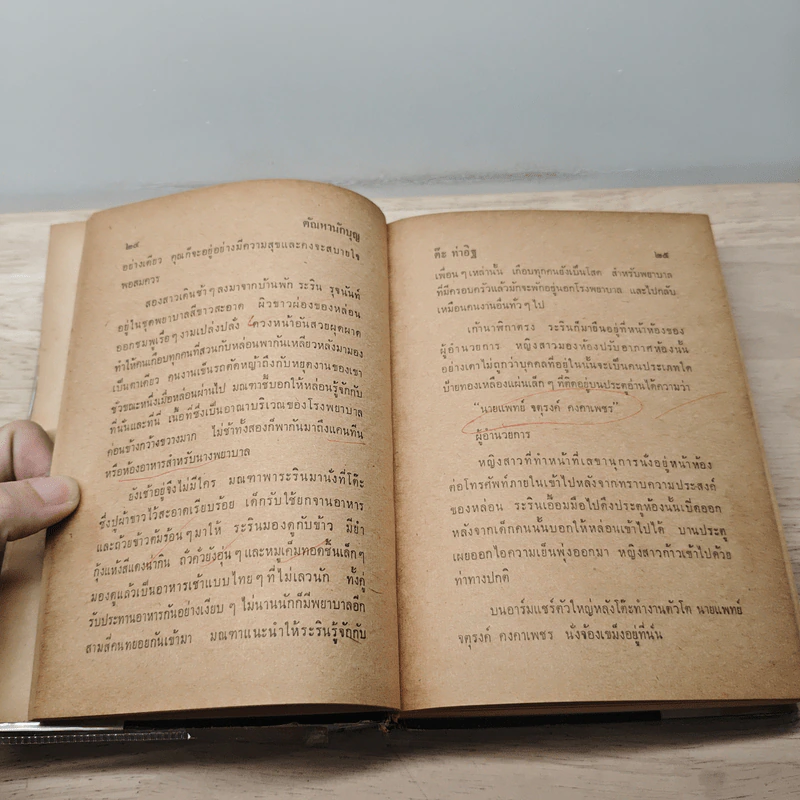 ๒๔
ตัณหานักบุญ
อย่างเดียว คุณก็จะอยู่อย่างมีความสุขและคงจะสบายใจ
พอสมควร
สองสาวเดินช้า ๆ ลงมาจากบ้านพัก ระริน รุจนันท์
อยู่ในชุดพยาบาลสีขาวสะอาด ผิวขาวผ่องของหล่อน
ออกชมพูเรื่อ ๆ งามเปล่งปลั่ง ดวงหน้าอันสวยผุดผาด
ทำให้คนเกือบทุกคนที่สวนกับหล่อนพากันเหลียวหลังมามอง
เป็นตาเดียว คนงานเข็นรถตัดหญ้าถึงกับหยุดงานของเขา
ชั่วขณะหนึ่งเมื่อหล่อนผ่านไป มณฑาชี้บอกให้หล่อนรู้จักกับ
ที่นั้นและที่นี่ เนื้อที่ซึ่งเป็นอาณาบริเวณของโรงพยาบาล
ค่อนข้างกว้างขวางมาก ไม่ช้าทั้งสองก็พากันมาถึงแคนทีน
หรือห้องอาหารสำหรับนางพยาบาล
ยังเช้าอยู่จึงไม่มีใคร มณฑาพาระรินมานั่งที่โต๊ะ
ซึ่งปูผ้าขาวไว้สะอาดเรียบร้อย เด็กรับใช้ยกจานอาหาร
และถ้วยข้าวต้มร้อน ๆ มาให้ ระรินมองดูกับข้าว มียำ
กุ้งแห้งสีแดงน่ากิน ถั่วคั่วยังอุ่น ๆ และหมูเค็มทอดชิ้นเล็ก ๆ
มองดูแล้วเป็นอาหารเช้าแบบไทย ๆ ที่ไม่เลวนัก ทั้งคู่
รับประทานอาหารกันอย่างเงียบ ๆ ไม่นานนักก็มีพยาบาลอีก
สามสี่คนทยอยกันเข้ามา มณฑาแนะนำให้ระรินรู้จักกับ
ต๊ะ ท่าอิฐ
๒๕
เพื่อน ๆ เหล่านั้น เกือบทุกคนยังเป็นโสด สำหรับพยาบาล
ที่มีครอบครัวแล้วมักจะพักอยู่นอกโรงพยาบาล และไปกลับ
เหมือนคนงานอื่นทั่ว ๆ ไป
เก้านาฬิกาตรง ระรินก็มายืนอยู่ที่หน้าห้องของ
ผู้อำนวยการ หญิงสาวมองห้องปรับอากาศห้องนั้น
อย่างเดาไม่ถูกว่าบุคคลที่อยู่ในนั้นจะเป็นคนประเภทใด
ป้ายทองเหลืองแผ่นเล็ก ๆ ที่ติดอยู่บนประตูอ่านได้ความว่า
“นายแพทย์ จตุรงค์ คงคาเพชร”
ผู้อำนวยการ
หญิงสาวที่ทำหน้าที่เลขานุการนั่งอยู่หน้าห้อง
ต่อโทรศัพท์ภายในเข้าไปหลังจากทราบความประสงค์
ของหล่อน ระรินเอื้อมมือไปดึงประตูห้องนั้นเปิดออก
หลังจากเด็กคนนั้นบอกให้หล่อนเข้าไปได้ บานประตู
เผยออกไอความเย็นพุ่งออกมา หญิงสาวก้าวเข้าไปด้วย
ท่าทางปกติ
บนอาร์มแชร์ตัวใหญ่หลังโต๊ะทำงานตัวโต นายแพทย์
จตุรงค์ คงคาเพชร นั่งจ้องเขม็งอยู่ที่นั่น